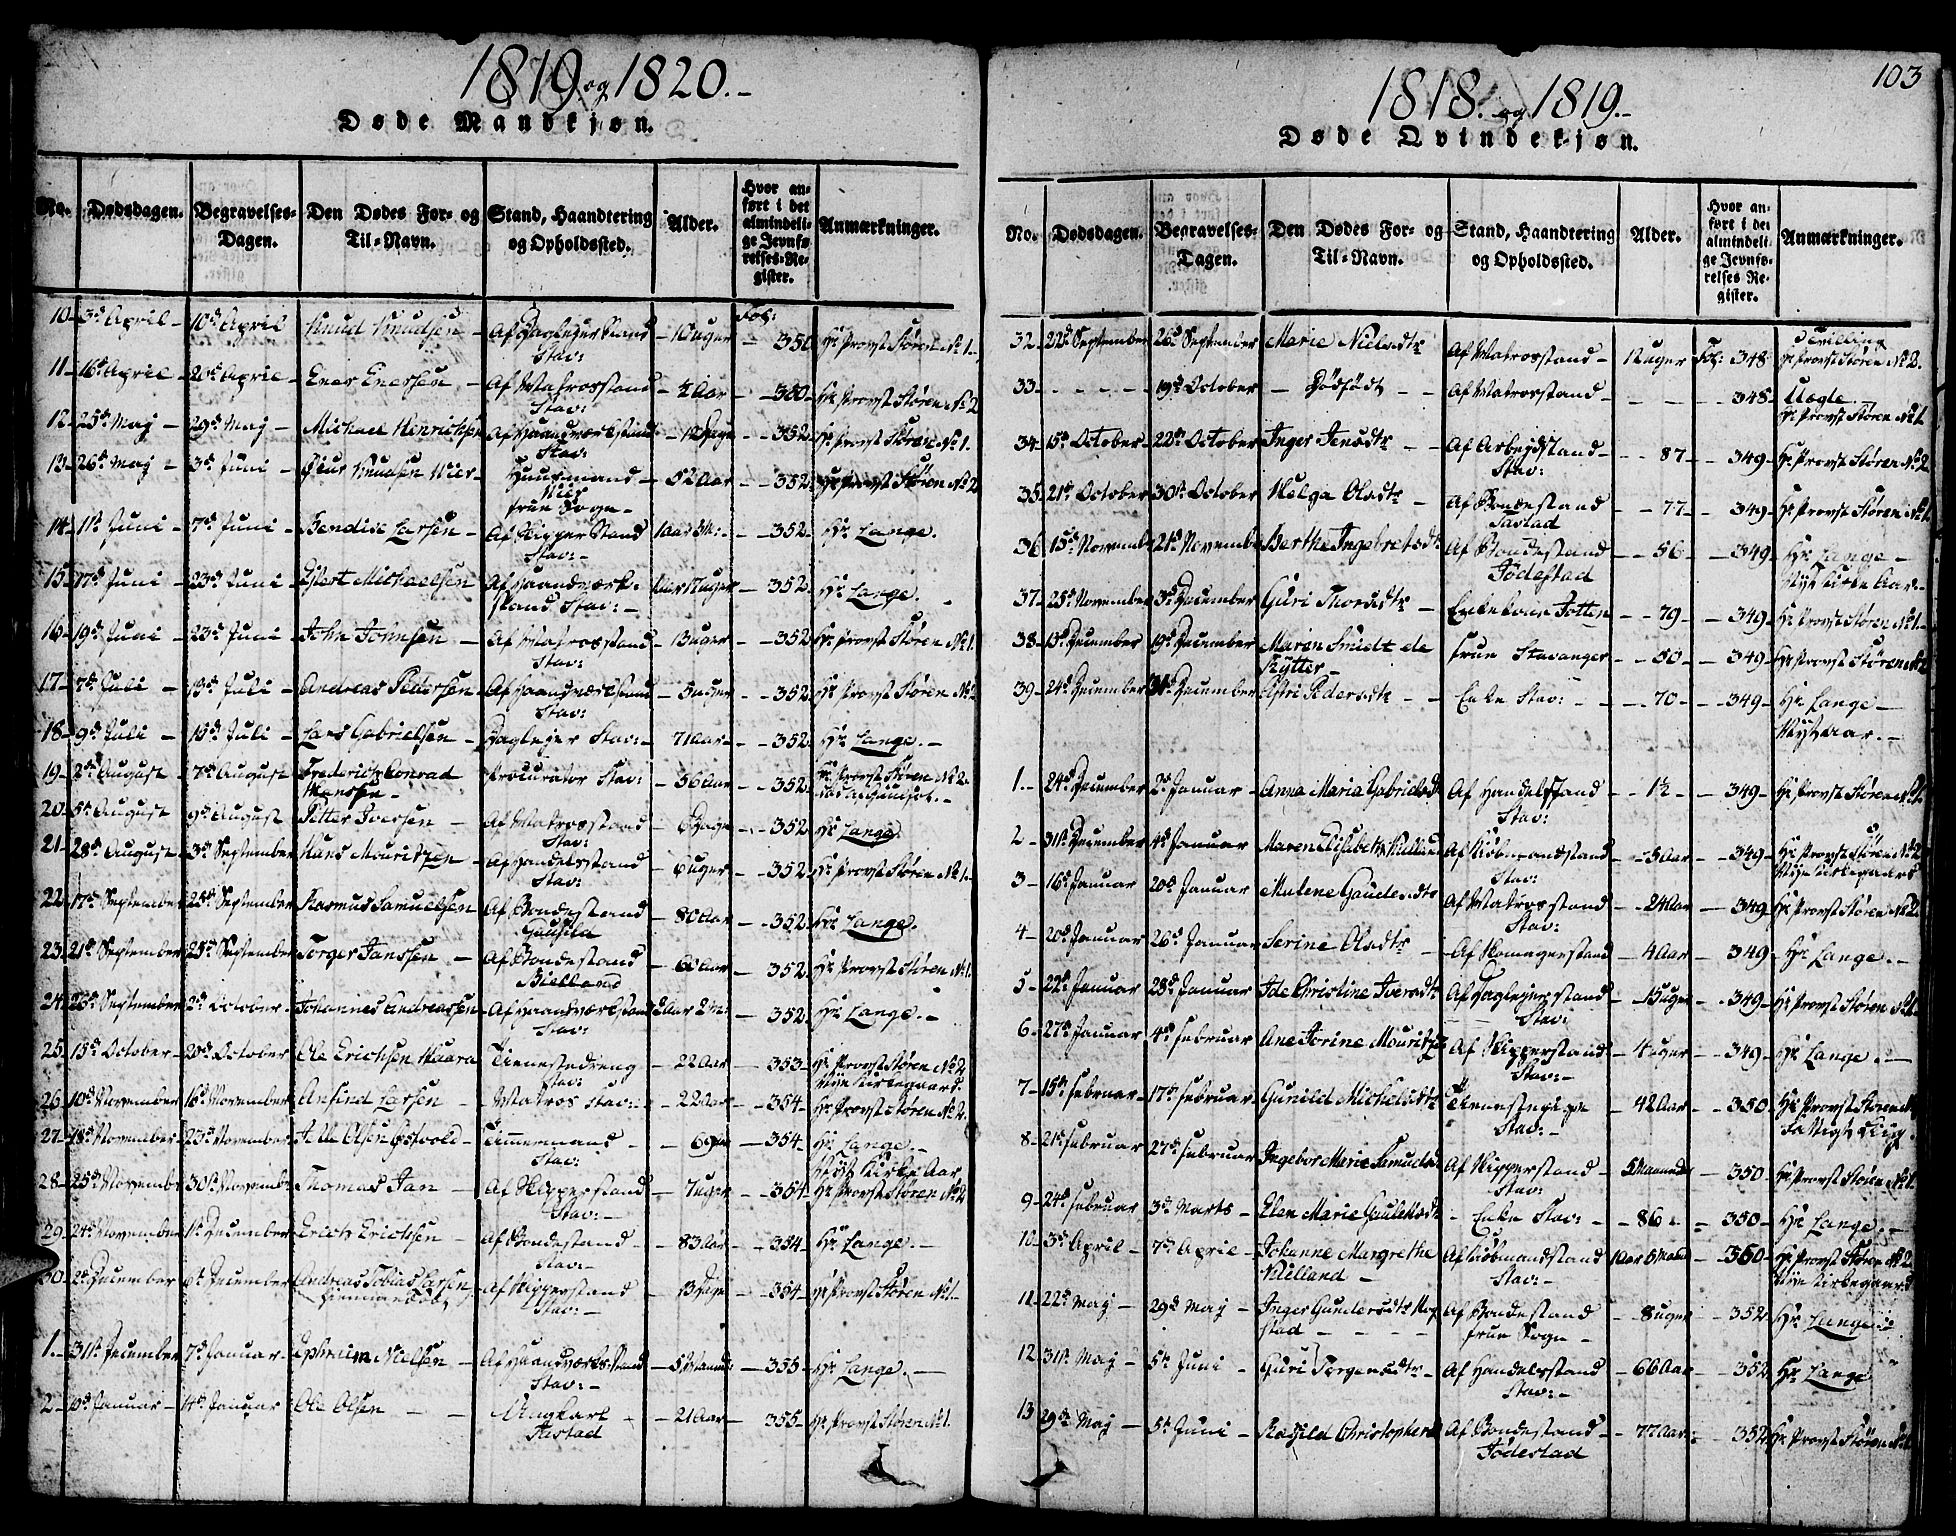 1819 og 1820.-
Døde Mandkjøn.
No. Dødsdagen. Begravelses-Dagen. Den Dødes For- og Til-Navn. Stand, Haandtering og Opholdssted. Alder. Hvor anført i det almindelige Jevnførelses-Register. Anmærkninger.
10 - 3d April - 10d April Knud Knudsen - Af Daglejer Stand Stav: - 10 uger - Fol: 350 Hr Provst Støren No 1.
11 - 16d April - 20d April - Ener Enersen - Af Matrosstand Stav: - 2 Aar - 350 - Hr Provst Støren No 2
12 - 25d Maj - 29d Maj - Michael Henrichsen Af Haandværkstand Stav: - 12 Dage - 352 - Hr Provst Støren No 1.
13 - 26d Maj - 3d Juni - Knudsen Huusmand fra Sogn - 52 Aar - 352 - Hr Provst Støren No 2
14 - 1d Juni - 7d Juni - Bendix Larsen - Af Skipper Stand Stav: - 1 Aar 3 M: - 352 - Hr Lange.
15 - 17d Juni - 23d Juni - Eilert Michaelsen Af Haandværkstand Stav: - 352 - Hr Lange.
16 - 19d Juni - 23d Juni - John Johnsen - Af Matrosstand Stav: - 13 uger - 352 - Hr Provst Støren No 1.
17 - 7d Juli - 13d Juli - Andreas Pettersen - Af Haandværkstand Stav: - 5 uger - 352 - Hr Provst Støren No 2
18 - 9d Juli - 15d Juli - Lars Gabrielsen - Daglejer Stav: - 71 Aar - 352 - Hr Lange. -
19 - 2d August - 7d August Frederich Conrad Hansen - Procurator Stav: - 56 Aar - 352 - Hr Provst Støren No 2.
20 - 5d August - 9d August Petter Iversen - Af Matrosstand Stav: - 6 Dage - 352 Hr Lange.
21 - 28d August - 3d September Hans Mouritzen - Af Handelsstand Stav: - 6 uger - 352 - Hr Provst Støren No 1.
22 - 17d September - 25d September - Rasmus Samuelsen Af Bondestand Gausela - 80 Aar - 352 - Hr Lange.
23 - 21d September 25d September Torger Janssen - Af Bondestand Bielland - 60 Aar - 352 - Hr Provst Støren No 1.
24 - 26d September 2d October - Johannes Andreassen - Af Haandværkstand Stav: - 2 Aar 2 M: - 352 - Hr Lange. -
25 - 15d October - 20d October Ole Erichsen Haara Tienestedreng Stav: - 22 Aar - 353 - Hr Provst Støren No 2 Nye Kirkegaard.
26 - 10d November 16d November Ansind Larsen - Matros Stav: - 22 Aar - 354 - Hr Provst Støren No 2.
27 - 18d November 23d November - Olsen Østvold - Timmermand Stav: - 69 Aar - 354 - Hr Lange.
28 - 25d November 30d November Thomas Jan - Af Skipperstand Stav: - 7 uger - 354 - Hr Provst Støren No 2
29 - 24d November 1d December - Erich Erichsen - Af Bondestand Stav: - 83 Aar - 354 - Hr Lange. -
30 - 2d December 6d December Andreas Tobias Larsen Hiemmedøbt Af Skipperstand Stav: - 13 Dage - 354 - Hr Provst Støren No 1.
1 - 31d December 7d Januar - Ephraim Nielsen - Af Haandværksstand Stav: - 5 Maaned: - 355 - Hr Lange. -
2 - 10d Januar - 14d Januar Ole Olsen - Ungkarl Aastad - 21 Aar - 355 - Hr Provst Støren No 1.
103
1818. og 1819.-
Døde Qvindekjøn.
No. Dødsdagen. Begravelses-Dagen. Den Dødes For- og Til-Navn. Stand, Haandtering og Opholdssted. Alder. Hvor anført i det almindelige Jevnførelses Register. Anmærkninger.
32 - 22d September 26d September Marie Nielsdtr Af Matrosstand - 12 uger Fol: 348 Tvilling Hr Provst Støren No 2.
33 - 19d October - Dødfødt - Af Matrosstand - 348 - Uægte Hr Provst Støren No 1
34 - 15d October - 22d October Inger Jensdtr - Af Arbejdstand Stav: - 87 - 349 - Hr Provst Støren No 2
35 - 21d October 30d October Helga Olsdtr - Af Bondestand Tastad - 77 - 349 - Hr Provst Støren No 1
36 - 15d November 21d November Berthe Ingebretsdtr Af Bondestand Jødestad - 56 - 349 - Hr Lange -
37 - 25d November 3d December Guri Thorsdtr - Enkekone Jotten - 79 - 349 - Hr Provst Støren No 1.
38 - 13d December 19d December Maren Smidt de Rytter - frue Stavanger - 50 - 349 - Hr Provst Støren No 2
39 - 24d December 31d December Astri Pedersdtr - Enke Stav: - 70 - 349 - Hr Lange -
1 - 24d December 2d Januar - Anna Maria Gabrielsdtr Af Handelstand Stav: - 1½ - 349 - Hr Provst Støren No 2
2 - 31d December 4d Januar Maren Elisabeth Kielland Af Kiøbmandstand Stav: - 5 Aar - 349 - Hr Provst Støren No 2 Nye Kirkegaard
3 - 16d Januar 20d Januar - Malene Gaudesdtr Af Matrosstand Stav: - 24 Aar - 349 Hr Provst Støren No 2.
4 - 20d Januar 26d Januar Serine Olsdtr - 4 Aar - 349 - Hr Lange. -
5 - 22d Januar 28d Januar Ide Christine Iversdtr Af Daglejerstand Stav: - 15 uger - 349 - Hr Provst Støren No 1.
6 - 27d Januar 4d Februar Ane Torine Mouritz Af Skipperstand Stav: - 4 uger - 349 - Hr Lange. -
7 - 15d Februar - 17d Februar Gunild Michelsdtr Tienestepige Stav: - 42 Aar - 350 - Hr Provst Støren
8 - 21d Februar 27d Februar Ingebor Marie Samuelsd Af Skipperstand Stav: - 5 Maaneder - 350 - Hr Provst Støren No 1.
9 - 24d Februar 3d Marts - Elen Marie Gaulesdtr - Enke Stav: - 86 - 350 - Hr Lange. -
10 - 3d April - 7d April - Johanne Margrethe Kielland - Af Kiøbmandstand Stav: - 350 - Hr Provst Støren No 2 Nye Kirkegaard
11 - 22d Maj - 29d Maj - Inger Gundersdtr Af Bondestand fra Sogn - 8 uger - 352 - Hr Lange
12 - 31d Maj - 5d Juni - Guri Torgersdtr - Af Handelsstand Stav: - 66 Aar - 352 - Hr Lange
13 - 29d Maj - 5d Juni - Ragild Christophersd Af Bondestand Jødestad - 77 Aar - 352 - Hr Provst Støren No 1